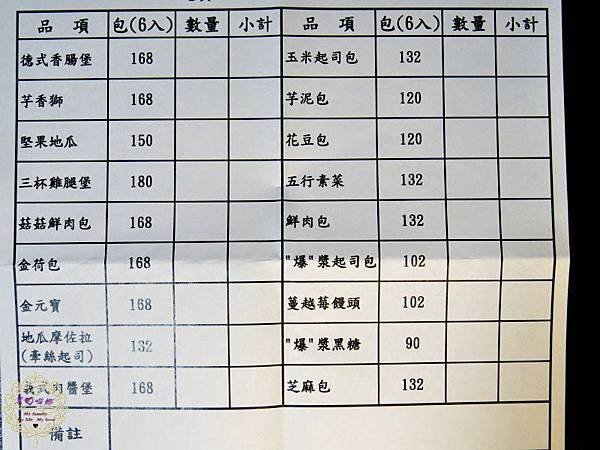 品 項 包(6入) 數量 小計 品 項 包(6入) 數量 小計
德式香腸堡 168 玉米起司包 132
芋香獅 168 芋泥包 120
堅果地瓜 150 花豆包 120
三杯雞腿堡 180 五行素菜 132
菇菇鮮肉包 168 鮮肉包 132
金荷包 168 "爆"漿起司包 102
金元寶 168 蔓越莓饅頭 102
地瓜摩佐拉 132 "爆"漿黑糖 90
(牽絲起司)
義式肉醬堡 168 芝麻包 132
備註
My family
My life My love